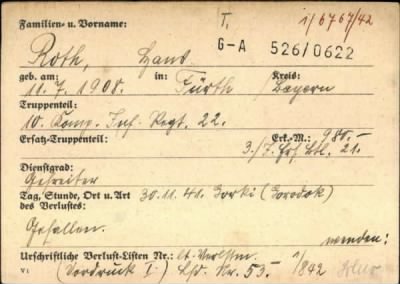 Familien- u. Vorname: T. 1/6767/42
G-A 526/0622
Roth, Hans
geb. am: in: Kreis:
11.7.1908. Fürth /Bayern
Truppenteil:
10. Komp. Inf. Regt. 22.
Ersatz-Truppenteil: Erk.-M.: 980.-
3./I. Ers. Btl. 21.
Dienstgrad:
Gefreiter
Tag, Stunde, Ort u. Art 30.11.41 Gorki (Gorodok)
des Verlustes:
Gefallen.
wenden:
Urschriftliche Verlust-Listen Nr.: lt. Verlstm.
V: (Vordruck I) Lfd. Nr. 53.- 1/842